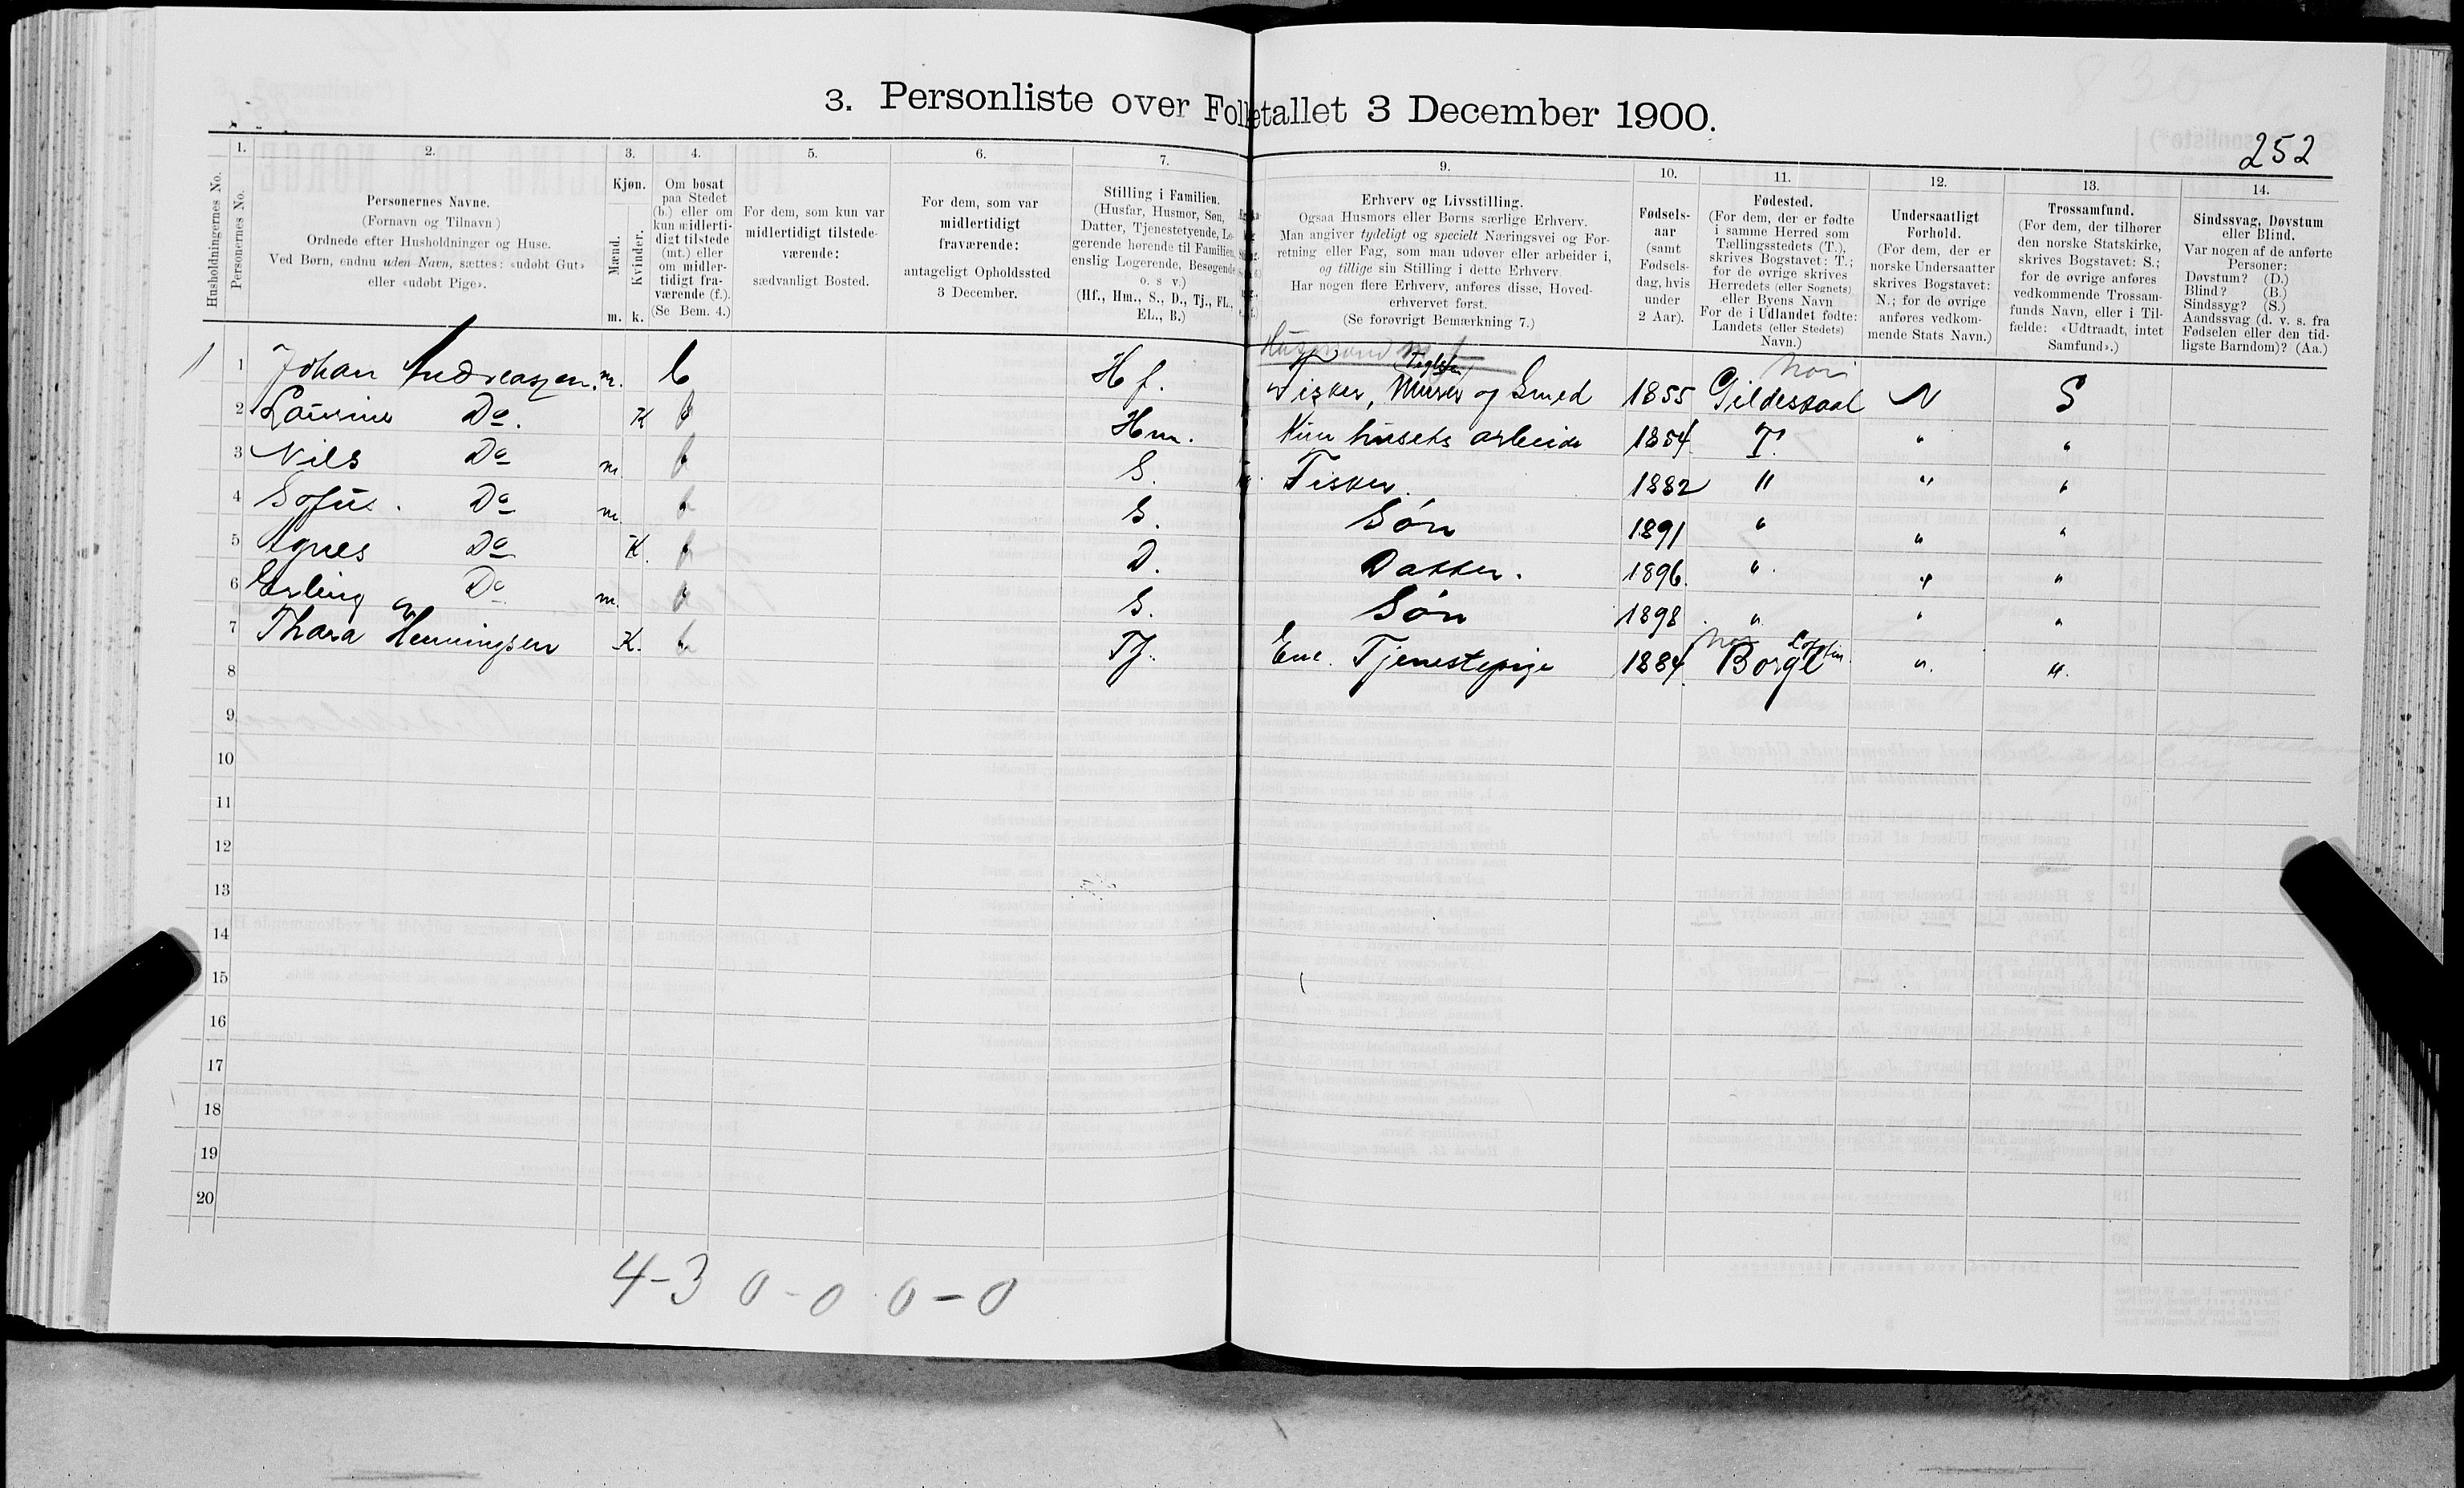 3. Personliste over Folketallet 3 December 1900.
252
1. 2. 3. 4. 5. 6. 7. 9. 10. 11. 12. 13. 14.
Husholdningernes No.
Personernes No.
Personernes Navne.
(Fornavn og Tilnavn)
Ordnede efter Husholdninger og Huse.
Ved Børn, endnu uden Navn, sættes: «udøbt Gut»
eller «udøbt Pige».
Kjøn.
Mænd.
Kvinder.
m. k.
Om bosat
paa Stedet
(b.) eller om
kun midlerti-
digt tilstede
(mt.) eller
om midler-
tidigt fra-
værende (f.).
(Se Bem. 4.)
For dem, som kun var
midlertidigt tilstede-
værende:
sædvanligt Bosted.
For dem, som var
midlertidigt
fraværende:
antageligt Opholdssted
3 December.
Stilling i Familien.
(Husfar, Husmor, Søn,
Datter, Tjenestetyende, Lo-
gerende hørende til Familien,
enslig Logerende, Besøgende
o. s v.)
(Hf., Hm., S., D., Tj., FL.,
EL., B.)
Erhverv og Livsstilling.
Ogsaa Husmors eller Børns særlige Erhverv.
Man angiver tydeligt og specielt Næringsvei og For-
retning eller Fag, som man udøver eller arbeider i,
og tillige sin Stilling i dette Erhverv.
Har nogen flere Erhverv, anføres disse, Hoved-
erhvervet først.
(Se forøvrigt Bemærkning 7.)
Fødsels-
aar
(samt
Fødsels-
dag, hvis
under
2 Aar).
Fødested.
(For dem, der er fødte
i samme Herred som
Tællingsstedets (T.),
skrives Bogstavet: T.;
for de øvrige skrives
Herredets (eller Sognets)
eller Byens Navn
For de i Udlandet fødte:
Landets (eller Stedets)
Navn.)
Undersaatligt
Forhold.
(For dem, der er
norske Undersaatter
skrives Bogstavet:
N.; for de øvrige
anføres vedkom-
mende Stats Navn.)
Trossamfund.
(For dem, der tilhører
den norske Statskirke,
skrives Bogstavet: S.;
for de øvrige anføres
vedkommende Trossam-
funds Navn, eller i Til-
fælde: «Udtraadt, intet
Samfund».)
Sindssvag, Døvstum
eller Blind.
Var nogen af de anførte
Personer:
Døvstum? (D.)
Blind? (B.)
Sindssyg? (S.)
Aandssvag (d. v. s. fra
Fødselen eller den tid-
ligste Barndom)? (Aa.)
Husmand
Nor
1 1 Johan Andreassen. m. b Hf. Fisker, Murer og Smed 1855 Gildeskaal N S
2 Laurine Do. K b Hm. Kun husets arbeide 1854 T. " "
3 Nils Do m. b S. Fisker. 1882 " " "
4 Sofus. Do m. b S. Søn 1891 " " "
5 Agnes Do K. b D. Datter. 1896. " " "
6 Erling Do m. b S. Søn 1898 " " "
7 Thora Henningsen K. b Tj. Enl. Tjenestepige 1884 Borge " "
8
9
10
11
12
13
14
15
16
17
18
19
20
4-3 0-0 0-0